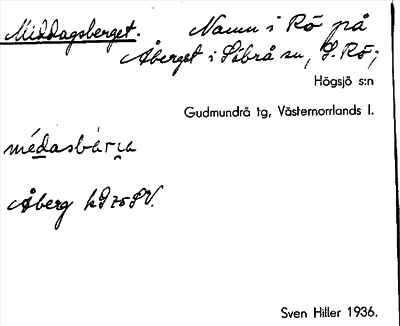 Middagsberget. Namn i Rö på
Åberget i Säbrå sn, S. Rö;
Högsjö s:n
Gudmundrå tg, Västernorrlands l.
médasbár̯a
Åberg
Sven Hiller 1936.